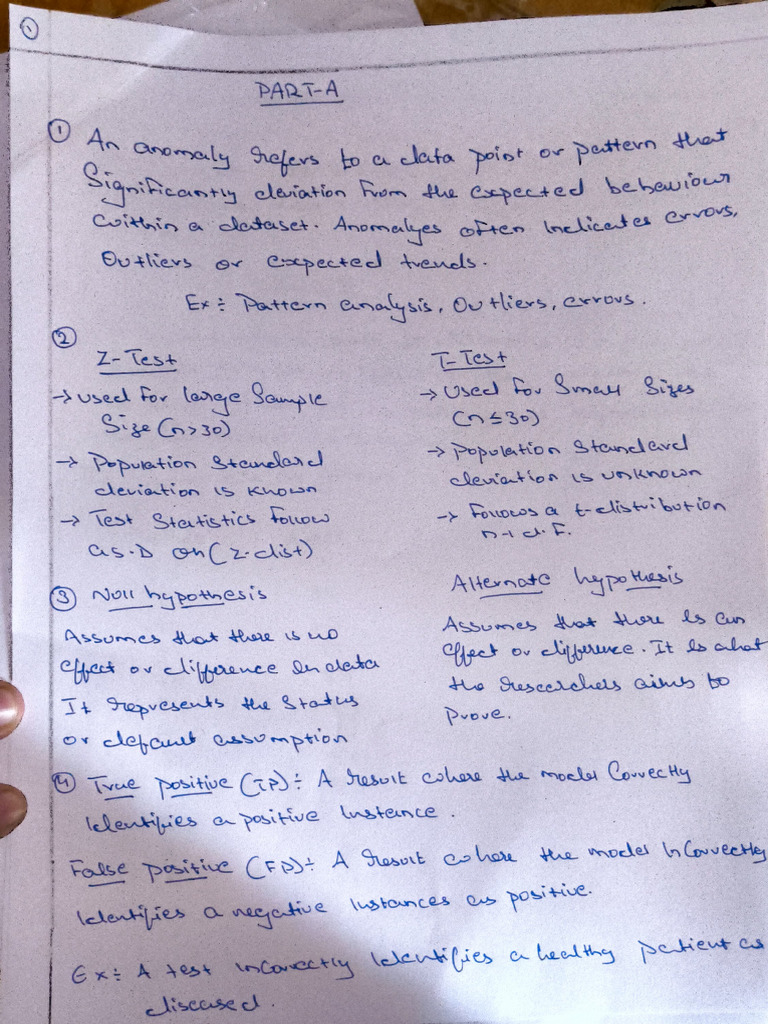 1
PART-A
① An anomaly refers to a data point or pattern that
Significantly deviation from the expected behaviour
within a dataset. Anomalyes often Indicates errors,
Outliers or expected trends.
Ex:- Pattern analysis, Outliers, errors.
②
Z-Test
→ used for large Sample
Size (n>30)
→ Population Standard
deviation is known
→ Test Statistics follow
as.D on (Z-dist)
T-Test
→ Used for Small Sizes
(n≤30)
→ Population Standard
deviation is unknown
→ Follows a t-distribution
n-1 d.F.
③ Null hypothesis
Assumes that there is no
effect or difference In data
It represents the Status
or default assumption
Alternate hypothesis
Assumes that there Is an
effect or difference. It Is what
the researchers aims to
Prove.
④ True positive (TP):- A result where the model Correctly
Identifies a positive Instance.
False positive (FP):- A result where the model InCorrectly
Identifies a negative Instances as positive.
Ex:- A test incorrectly Identifies a healthy patient as
diseased.